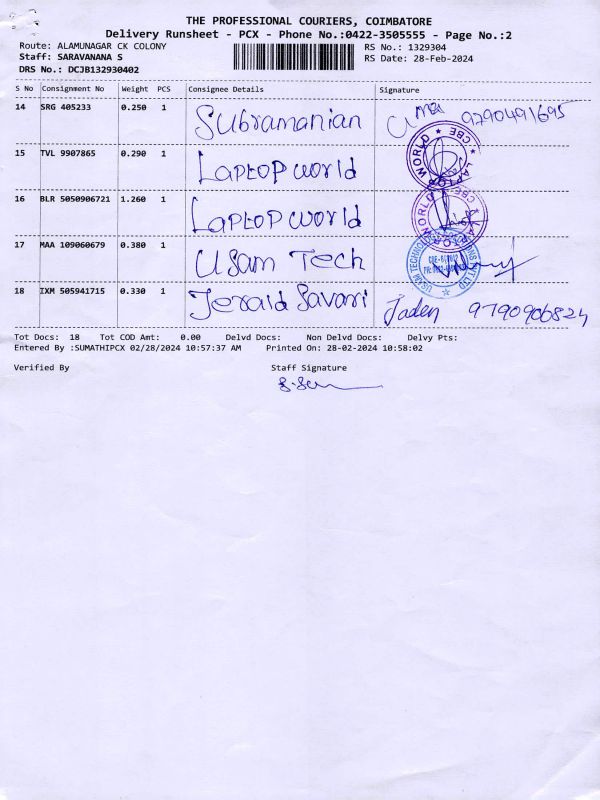 THE PROFESSIONAL COURIERS, COIMBATORE
Delivery Runsheet - PCX - Phone No.:0422-3505555 - Page No.:2
Route: ALAMUNAGAR CK COLONY RS No.: 1329304
Staff: SARAVANANA S RS Date: 28-Feb-2024
DRS No.: DCJB132930402
S No Consignment No Weight PCS Consignee Details Signature
14 SRG 405233 0.250 1 Subramanian 9790491695
15 TVL 9907865 0.290 1 Laptop world LAPTOP WORLD ★ CBE ★
16 BLR 5050906721 1.260 1 Laptop world LAPTOP WORLD ★ CBE ★
17 MAA 109060679 0.380 1 Usam Tech
18 IXM 505941715 0.330 1 Jerald Savari Jaden 9790906824
Tot Docs: 18 Tot COD Amt: 0.00 Delvd Docs: Non Delvd Docs: Delvy Pts:
Entered By :SUMATHIPCX 02/28/2024 10:57:37 AM Printed On: 28-02-2024 10:58:02
Verified By Staff Signature